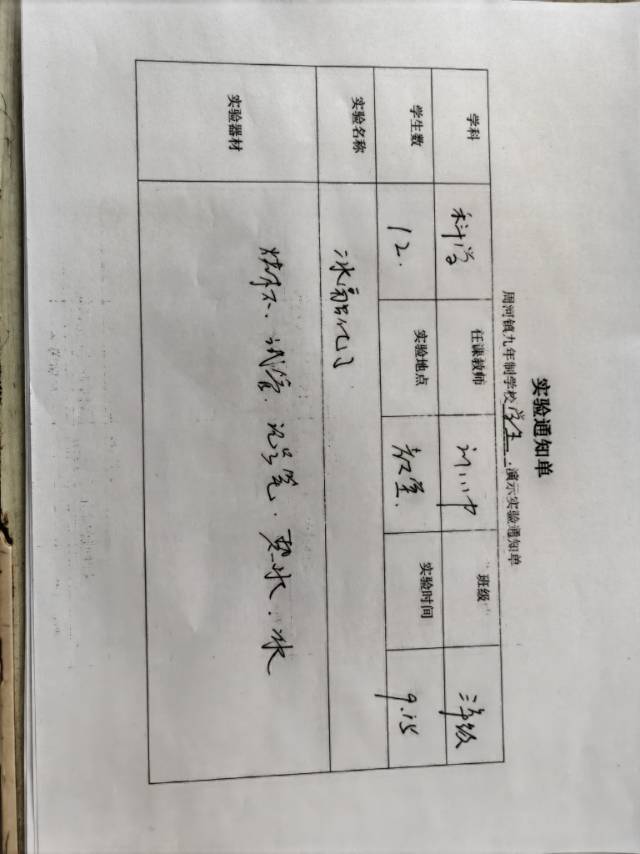 实验通知单
周河镇九年制学校学生 演示实验通知单
学科 科学 任课教师 班级 三年级
学生数 12. 实验地点 教室. 实验时间 9.15
实验名称 冰融化了
实验器材 烧杯、试管、记号笔、热水、冰